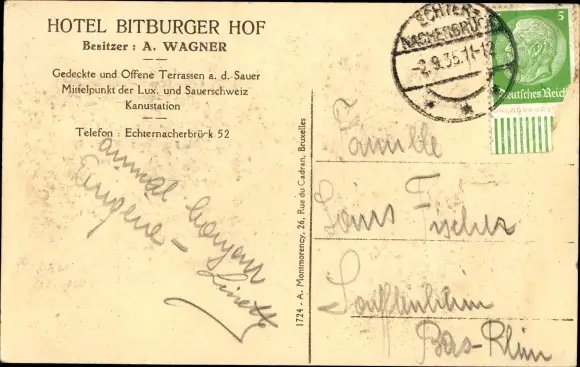 HOTEL BITBURGER HOF
Besitzer : A. WAGNER
Gedeckte und Offene Terrassen a. d. Sauer
Mittelpunkt der Lux. und Sauerschweiz
Kanustation
Telefon : Echternacherbrück 52
amical
Eugène -
1724 - A. Montmorency, 26, Rue du Cadran, Bruxelles
ECHTER-
NACHERBRÜCK
-2.9.35.11-12
5
Deutsches Reich
Famille
Louis Fischer
Soufflenheim
Bas-Rhin